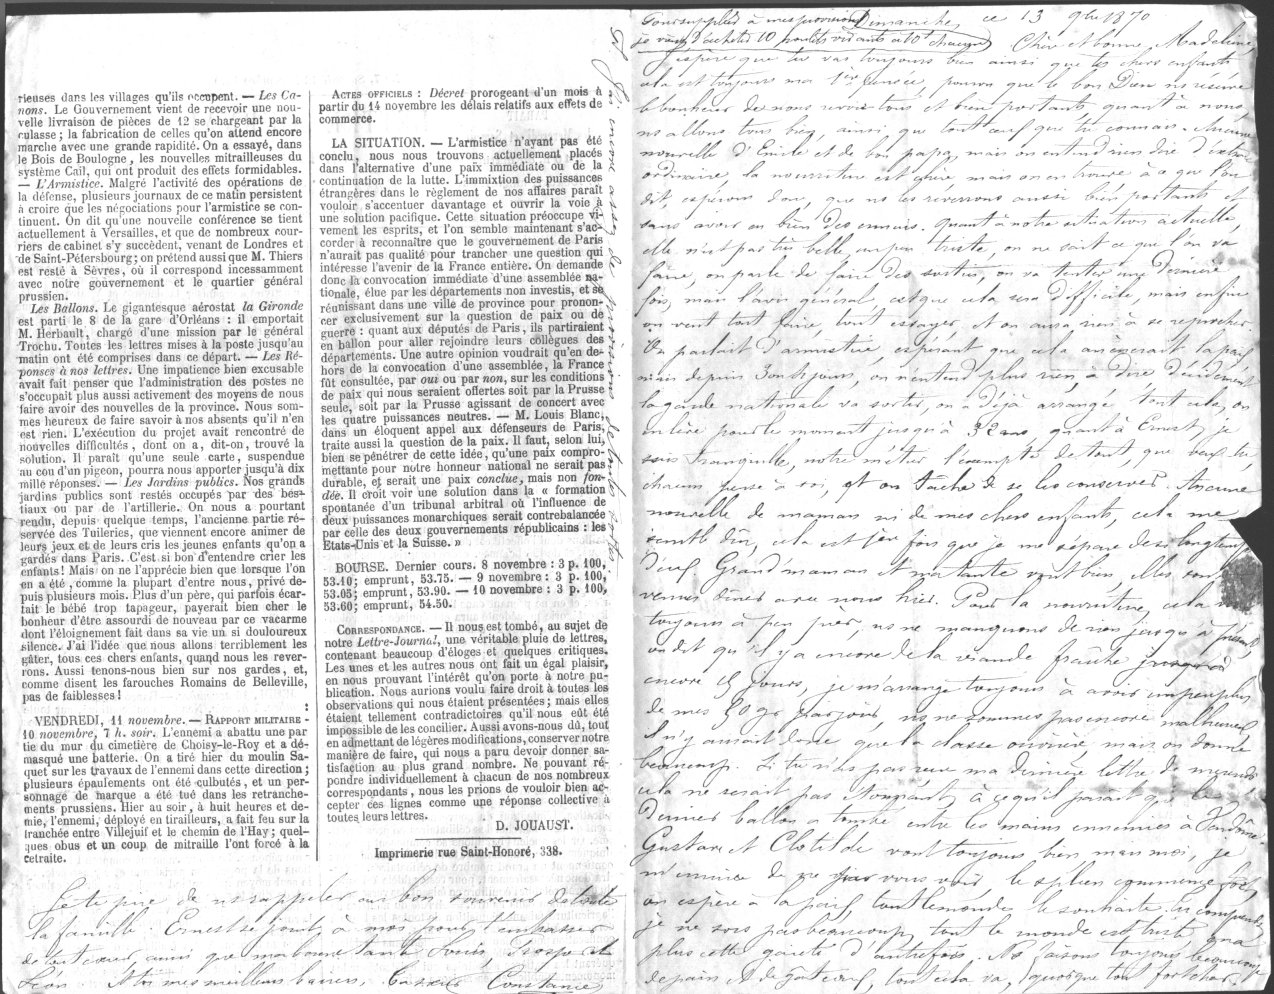 rieuses dans les villages qu'ils occupent. — Les Ca-
nons. Le Gouvernement vient de recevoir une nou-
velle livraison de pièces de 12 se chargeant par la
culasse ; la fabrication de celles qu'on attend encore
marche avec une grande rapidité. On a essayé, dans
le Bois de Boulogne, les nouvelles mitrailleuses du
système Cail, qui ont produit des effets formidables.
— L'Armistice. Malgré l'activité des opérations de
la défense, plusieurs journaux de ce matin persistent
à croire que les négociations pour l'armistice se con-
tinuent. On dit qu'une nouvelle conférence se tient
actuellement à Versailles, et que de nombreux cour-
riers de cabinet s'y succèdent, venant de Londres et
de Saint-Pétersbourg ; on prétend aussi que M. Thiers
est resté à Sèvres, où il correspond incessamment
avec notre gouvernement et le quartier général
prussien.
Les Ballons. Le gigantesque aérostat la Gironde
est parti le 8 de la gare d'Orléans : il emportait
M. Herbault, chargé d'une mission par le général
Trochu. Toutes les lettres mises à la poste jusqu'au
matin ont été comprises dans ce départ. — Les Ré-
ponses à nos lettres. Une impatience bien excusable
avait fait penser que l'administration des postes ne
s'occupait plus aussi activement des moyens de nous
faire avoir des nouvelles de la province. Nous som-
mes heureux de faire savoir à nos absents qu'il n'en
est rien. L'exécution du projet avait rencontré de
nouvelles difficultés, dont on a, dit-on, trouvé la
solution. Il paraît qu'une seule carte, suspendue
au cou d'un pigeon, pourra nous apporter jusqu'à dix
mille réponses. — Les Jardins publics. Nos grands
jardins publics sont restés occupés par des bes-
tiaux ou par de l'artillerie. On nous a pourtant
rendu, depuis quelque temps, l'ancienne partie ré-
servée des Tuileries, que viennent encore animer de
leurs jeux et de leurs cris les jeunes enfants qu'on a
gardés dans Paris. C'est si bon d'entendre crier les
enfants ! Mais on ne l'apprécie bien que lorsque l'on
en a été, comme la plupart d'entre nous, privé de-
puis plusieurs mois. Plus d'un père, qui parfois écar-
tait le bébé trop tapageur, payerait bien cher le
bonheur d'être assourdi de nouveau par ce vacarme
dont l'éloignement fait dans sa vie un si douloureux
silence. J'ai l'idée que nous allons terriblement les
gâter, tous ces chers enfants, quand nous les rever-
rons. Aussi tenons-nous bien sur nos gardes, et,
comme disent les farouches Romains de Belleville,
pas de faiblesses !
VENDREDI, 11 novembre. — RAPPORT MILITAIRE -
10 novembre, 7 h. soir. L'ennemi a abattu une par
tie du mur du cimetière de Choisy-le-Roy et a dé-
masqué une batterie. On a tiré hier du moulin Sa-
quet sur les travaux de l'ennemi dans cette direction ;
plusieurs épaulements ont été culbutés, et un per-
sonnage de marque a été tué dans les retranche-
ments prussiens. Hier au soir, à huit heures et de-
mie, l'ennemi, déployé en tirailleurs, a fait feu sur la
tranchée entre Villejuif et le chemin de l'Hay ; quel-
ques obus et un coup de mitraille l'ont forcé à la
retraite.
ACTES OFFICIELS : Décret prorogeant d'un mois à
partir du 14 novembre les délais relatifs aux effets de
commerce.
LA SITUATION. — L'armistice n'ayant pas été
conclu, nous nous trouvons actuellement placés
dans l'alternative d'une paix immédiate ou de la
continuation de la lutte. L'immixtion des puissances
étrangères dans le règlement de nos affaires paraît
vouloir s'accentuer davantage et ouvrir la voie à
une solution pacifique. Cette situation préoccupe vi-
vement les esprits, et l'on semble maintenant s'ac-
corder à reconnaître que le gouvernement de Paris
n'aurait pas qualité pour trancher une question qui
intéresse l'avenir de la France entière. On demande
donc la convocation immédiate d'une assemblée na-
tionale, élue par les départements non investis, et se
réunissant dans une ville de province pour pronon-
cer exclusivement sur la question de paix ou de
guerre : quant aux députés de Paris, ils partiraient
en ballon pour aller rejoindre leurs collègues des
départements. Une autre opinion voudrait qu'en de-
hors de la convocation d'une assemblée, la France
fût consultée, par oui ou par non, sur les conditions
de paix qui nous seraient offertes soit par la Prusse
seule, soit par la Prusse agissant de concert avec
les quatre puissances neutres. — M. Louis Blanc,
dans un éloquent appel aux défenseurs de Paris,
traite aussi la question de la paix. Il faut, selon lui,
bien se pénétrer de cette idée, qu'une paix compro-
mettante pour notre honneur national ne serait pas
durable, et serait une paix conclue, mais non fon-
dée. Il croit voir une solution dans la « formation
spontanée d'un tribunal arbitral où l'influence de
deux puissances monarchiques serait contrebalancée
par celle des deux gouvernements républicains : les
Etats-Unis et la Suisse. »
BOURSE. Dernier cours. 8 novembre : 3 p. 100,
53.10 ; emprunt, 53.75. — 9 novembre : 3 p. 100,
53.05 ; emprunt, 53.90. — 10 novembre : 3 p. 100,
53.60 ; emprunt, 54.50.
CORRESPONDANCE. — Il nous est tombé, au sujet de
notre Lettre-Journal, une véritable pluie de lettres,
contenant beaucoup d'éloges et quelques critiques.
Les unes et les autres nous ont fait un égal plaisir,
en nous prouvant l'intérêt qu'on porte à notre pu-
blication. Nous aurions voulu faire droit à toutes les
observations qui nous étaient présentées ; mais elles
étaient tellement contradictoires qu'il nous eût été
impossible de les concilier. Aussi avons-nous dû, tout
en admettant de légères modifications, conserver notre
manière de faire, qui nous a paru devoir donner sa-
tisfaction au plus grand nombre. Ne pouvant ré-
pondre individuellement à chacun de nos nombreux
correspondants, nous les prions de vouloir bien ac-
cepter ces lignes comme une réponse collective à
toutes leurs lettres.
D. JOUAUST.
Imprimerie rue Saint-Honoré, 338.
Je te prie de ns rappeler au bon souvenir de toute
la famille. Ernest se joint à moi pour t'embrasser
de tout cœur, ainsi que ma bonne tante Prosper et
Léon. Mes meilleurs baisers, Constance
J'ai encore assez de provisions de toutes sortes
Dimanche, ce 13 9bre 1870
je viens d'acheter 10 poulets vivants à 10f chacun
Chère et bonne Madeleine,
J'espère que tu vas toujours bien ainsi que tes chers enfants
cela est toujours ma 1ère pensée, pourvu que le bon Dieu ns réserve
le bonheur de nous revoir tous et bien portants quant à nous,
ns allons tous bien, ainsi que tout ceux que tu connais. Aucune
nouvelle d'Emile et de bon papa, mais on n'entend rien dire d'extra
ordinaire, la nourriture est chère mais on en trouve à ce que l'on
dit, espérons donc, que ns les reverrons aussi bien portants et
sans avoir eu bien des ennuis. Quant à notre situation actuelle,
elle n'est pas très belle un peu triste, on ne sait ce que l'on va
faire, on parle de faire des sorties, on va tenter une dernière
fois, mais l'avis général est que cela sera difficile, mais enfin
on veut tout faire, tout essayer, et on aura rien à se reprocher.
On parlait d'armistice, espérant que cela amènerait la paix
mais depuis 3 ou 4 jours, on n'entend plus rien à dire décidément
la garde nationale va sortir, on a déjà arrangé tout cela, on
enlève pour le moment jusqu'à 32 ans, quant à Ernest, je
suis tranquille, notre métier l'exempte de tout, que veux-tu
chacun pense à soi, et on tâche de se les conserver. Aucune
nouvelle de maman ni de mes chers enfants, cela me
semble dur, cela est 1ère fois que je me sépare de si longtemps
d'eux. Grand'maman et ma tante vont bien, elles sont
venues dîner avec nous hier. Pour la nourriture, cela va
toujours à peu près, ns ne manquons de rien jusqu'à présent,
on dit qu'il y a encore de la viande fraîche
encore 15 jours, je m'arrange toujours à avoir un peu plus
de mes 50 gr par jour, ns ne sommes pas encore malheureux,
Il n'y aurait donc que la classe ouvrière mais on donne
beaucoup. Si tu n'as pas reçu ma dernière lettre
cela ne serait pas étonnant, à ce qu'il paraît que le
dernier ballon a tombé entre les mains ennemies à
Gustave et Clotilde vont toujours bien, mais moi, je
m'ennuie de ne pas vous voir, le spleen commence
on espère à la paix, tout le monde le souhaite, tu comprends
je ne sors pas beaucoup, tout le monde est triste, on n'a
plus cette gaieté d'autrefois. Ns faisons toujours beaucoup
de pain et de gateaux, tout cela va, quoique tout fort cher.